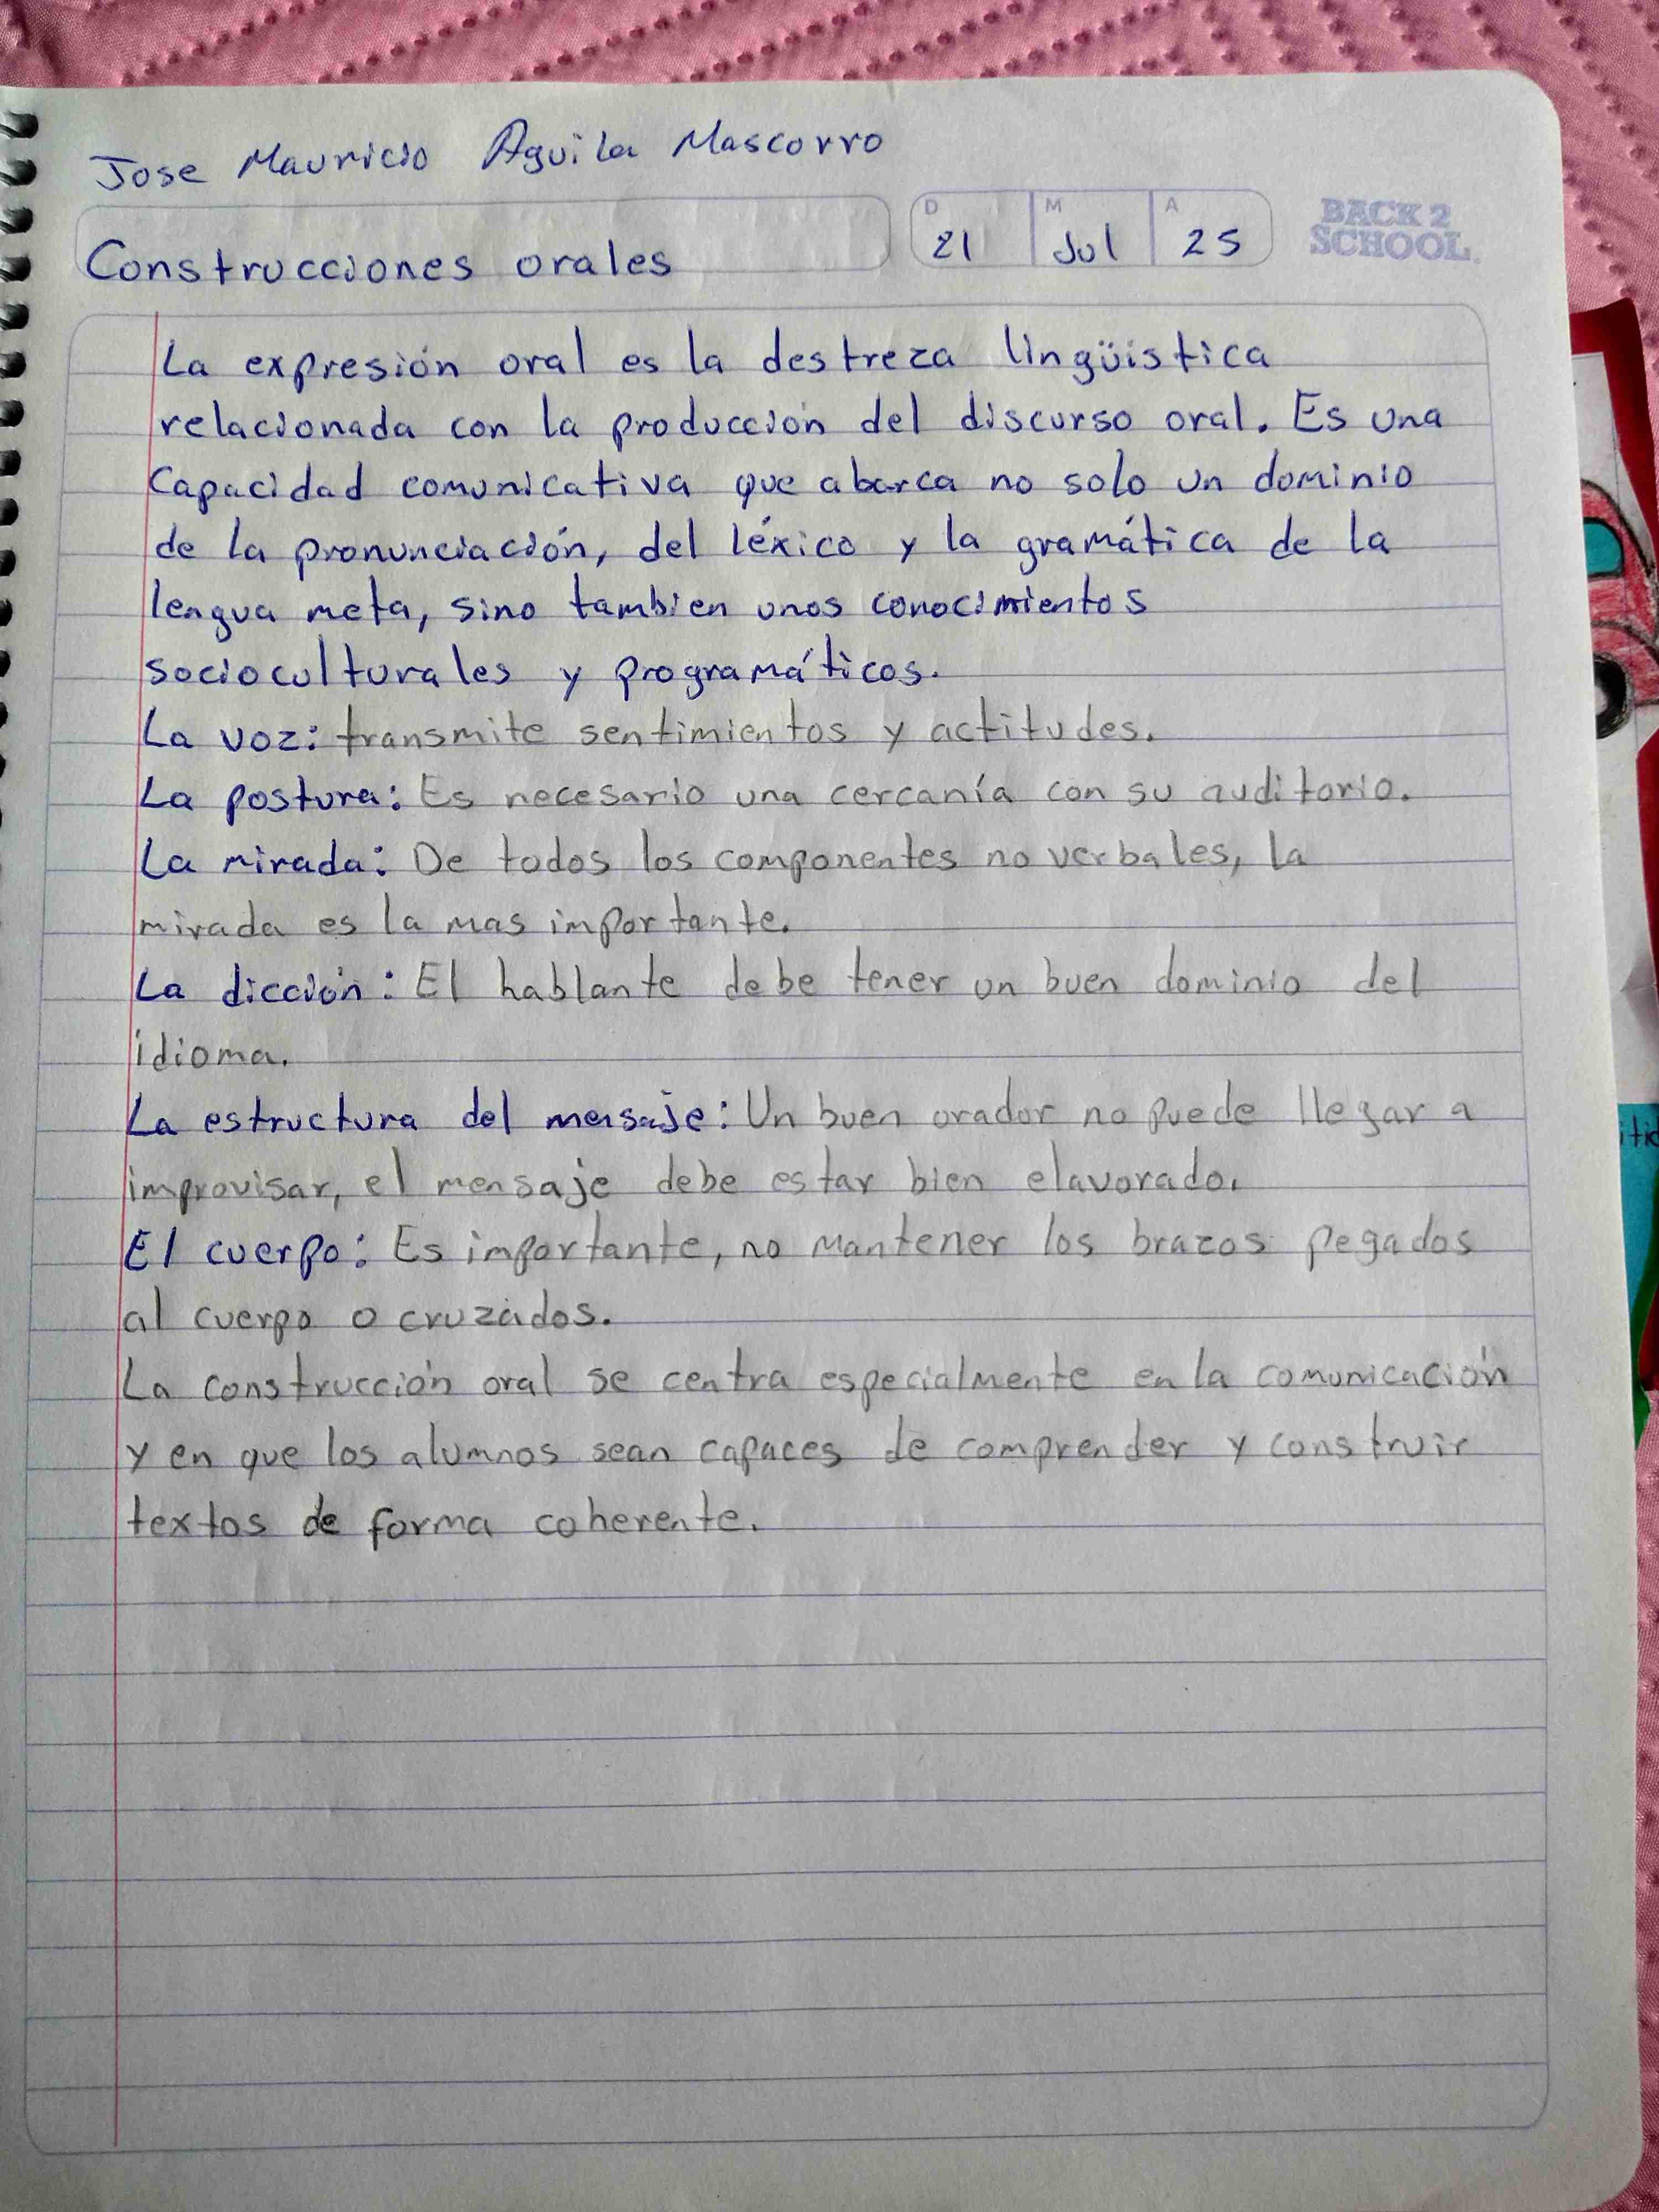 Jose Mauricio Aguila Mascorro
D M A
21 Jul 25
BACK 2
SCHOOL
Construcciones orales
La expresión oral es la destreza lingüistica
relacionada con la producción del discurso oral. Es una
Capacidad comunicativa que abarca no solo un dominio
de la pronunciación, del léxico y la gramática de la
lengua meta, sino tambien unos conocimientos
socioculturales y programáticos.
La voz: transmite sentimientos y actitudes.
La postura: Es necesario una cercanía con su auditorio.
La mirada: De todos los componentes no verbales, la
mirada es la mas importante.
La dicción: El hablante debe tener un buen dominio del
idioma.
La estructura del mensaje: Un buen orador no puede llegar a
improvisar, el mensaje debe estar bien elavorado.
El cuerpo: Es importante, no mantener los brazos pegados
al cuerpo o cruzados.
La construcción oral se centra especialmente en la comunicación
y en que los alumnos sean capaces de comprender y construir
textos de forma coherente.